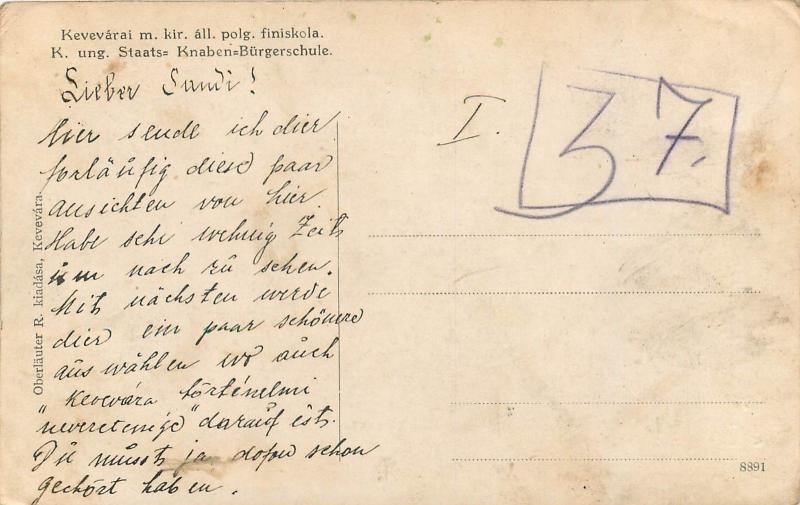 Kevevárai m. kir. áll. polg. finiskola.
K. ung. Staats= Knaben=Bürgerschule.
Lieber Sandi!
hier sende ich dier
forläufig diese paar
ansichten von hier.
Habe sehr wehnig Zeit
um nach zu sehen.
Mit nächsten werde
dier ein paar schönere
aus wählen wo auch
"Kevevára történelmi
nevezetesige" darauf ist.
Du musst ja dofon schon
gehört haben.
I. 37.
Oberläuter R. kiadása, Kevevára.
8891